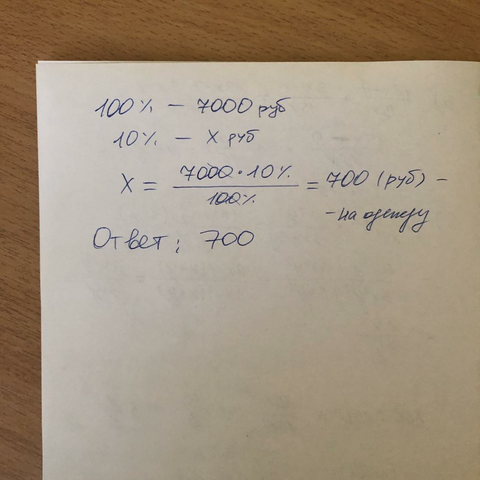 100% – 7000 руб
10% – x руб
x = 7000 · 10% / 100% = 700 (руб) –
– на одежду
Ответ: 700